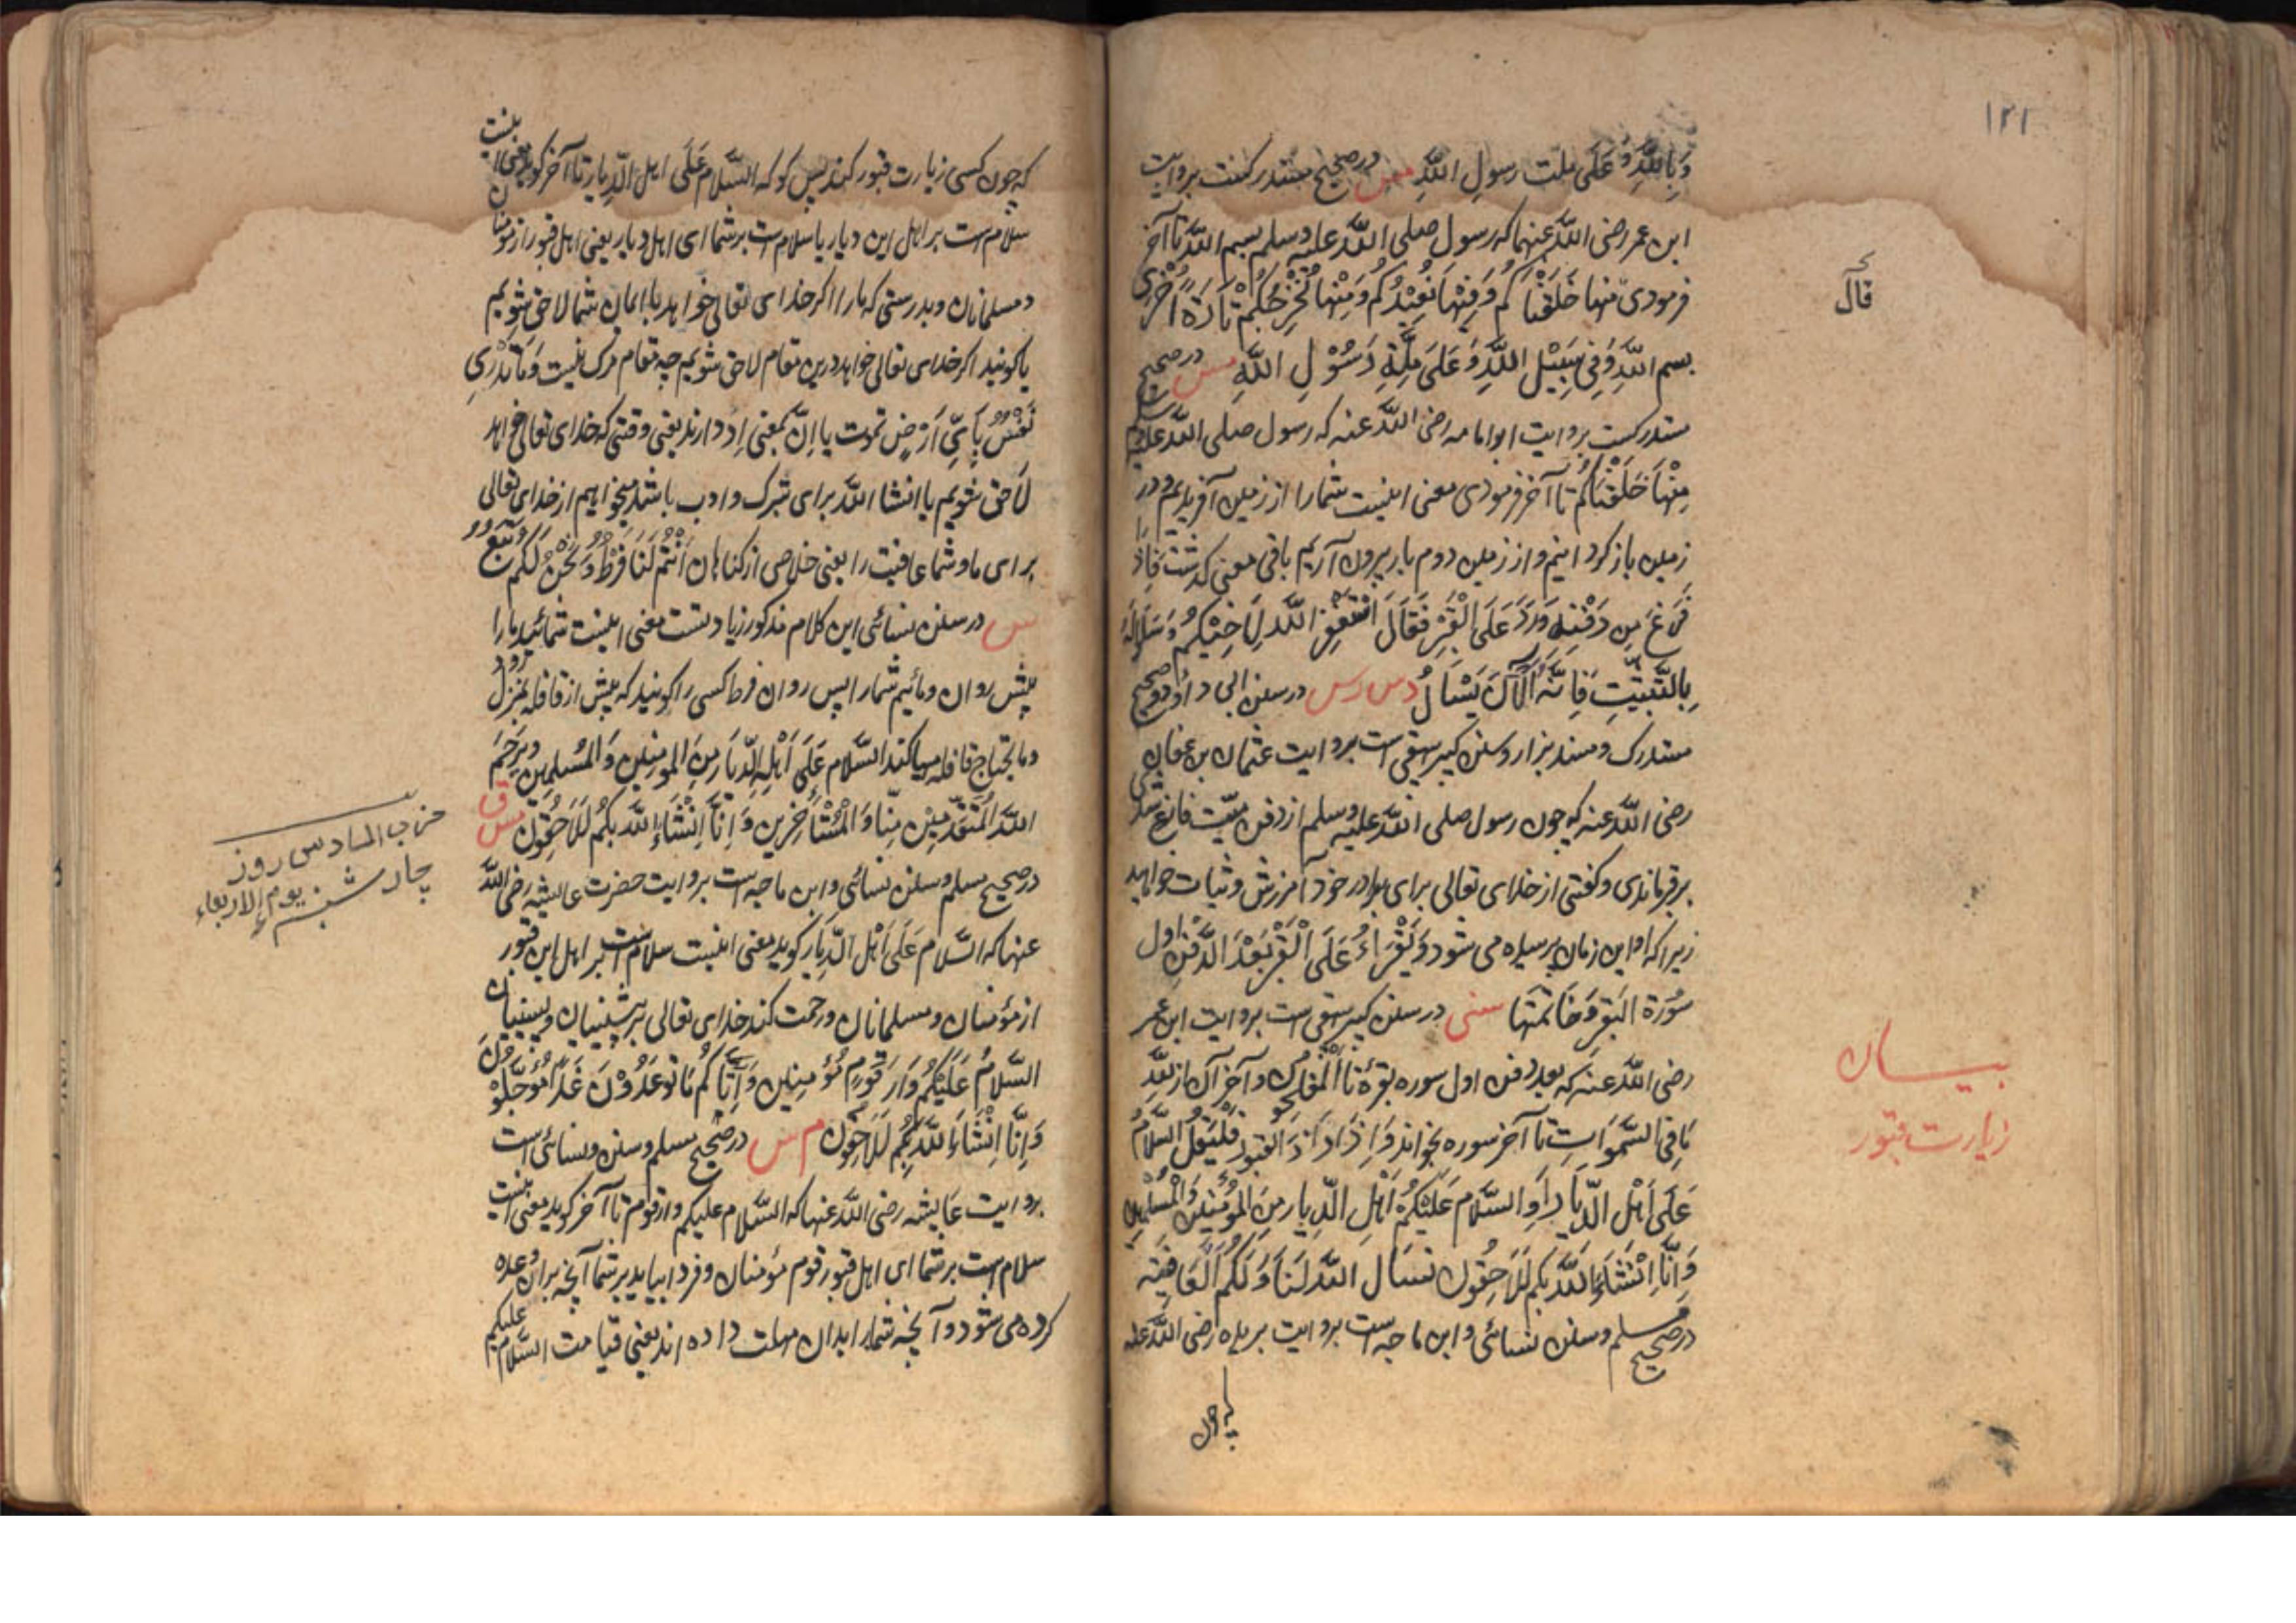 ١٢١
وَبِاللّٰهِ وَعَلَى ملت رسولِ اللّٰهِ مس در صحیح مستدرکست بروایت
ابن عمر رضی اللّٰه عنهما که رسول صلی اللّٰه علیه وسلم بسم اللّٰه تا آخر
فرمودی منها خَلَقْنَاكُم وَفِيْهَا نُعِيْدُكُم وَمِنْهَا نُخْرِجُكُمْ تَارَةً اُخْرٰى
قال
بسم اللّٰهِ وَفِى سَبِيْلِ اللّٰهِ وَعَلَى مِلَّةِ رَسُوْلِ اللّٰهِ مس در صحیح
مستدرکست بروایت ابوامامه رضی اللّٰه عنه که رسول صلی اللّٰه علیه وسلم
مِنْهَا خَلَقْنَاكُم تا آخر فرمودی معنی اینست شما را از زمین آفریدیم و در
زمین باز گردانیم و از زمین دوم بار بیرون آریم باقی معنی گذشت فَاِذَا
فَرَغَ مِن دَفْنِهِ وَرَدَ عَلَى الْقَبْرِ فَقَالَ اسْتَغْفِرِ اللّٰه لِاَخِيْكُم وَسَلُوا لَهُ
بِالتَّثْبِيْتِ فَاِنَّهُ اَلْاٰنَ يُسْاَلُ د مس ر س در سنن ابی داؤد و صحیح
مستدرک و مسند بزار و سنن کبیر بیهقی است بروایت عثمان بن عفان
رضی اللّٰه عنه که چون رسول صلی اللّٰه علیه وسلم از دفن میّت فارغ شدی
بر قبر ماندی و گفتی از خدای تعالی برای برادر خود آمرزش و ثبات خواهید
زیرا که او این زمان پرسیده می شود وَيُقْرَاءُ عَلَى الْقَبْرِ بَعْدَ الدَّفْنِ اول
سُوْرَة البَقَرِ وَخَاتمتها سنى در سنن کبیر بیهقی است بروایت ابن عمر
رضی اللّٰه عنه که بعد دفن اول سوره بقره تا المفلحون و آخر آن از للّٰه
مَا فِى السَّمٰوَاتِ تا آخر سوره بخواند وَاِذَا زَارَ القبور فَلْيَقُلِ السَّلَامُ
عَلَى اَهْلِ الدِّيَارِ اَوِ السَّلَام عَلَيْكُمْ اَهْلِ الدِّيارِ مِنَ المُؤْمِنِيْنَ وَالْمُسْلِمِيْنَ
وَاِنَّا اِنْشَاءَ اللّٰه بِكُم لَلَاحِقُونَ نَسْاَل اللّٰه لَنَا وَلَكُم الْعَافِيَه
در صحیح مسلم و سنن نسائی و ابن ماجه است بروایت بریده رضی اللّٰه عنه
بیان
زیارت قبور
که چون
که چون کسی زیارت قبور کند پس گو که السَّلَام عَلَى اهل الدِّيار تا آخر گوید یعنی اینست
سلام است بر اهل این دیار یا سلام است بر شما ای اهل دیار یعنی اهل قبور از مومنان
و مسلمانان و بدرستی که ما را اگر خدای تعالی خواهد با ایمان شما لاحق شویم
یا گویند اگر خدای تعالی خواهد درین مقام لاحق شویم چه مقام مرگ نیست وَمَا تَدْرِى
نَفْسٌ بِاَىِّ اَرْضٍ تموت یا اِنْ بمعنی اِذ دارند یعنی وقتی که خدای تعالی خواهد
لاحق شویم یا انشا اللّٰه برای تبرک و ادب باشد میخواهیم از خدای تعالی
برای ما و شما عافیت را یعنی خلاصی از گناهان اَنْتُمْ لَنَا فَرَطٌ وَنَحْنُ لَكُم تَبَعٌ
س در سنن نسائی این کلام مذکور زیادتست معنی اینست شمائید ما را
پیش روان و مائیم شما را پس روان فرط کسی را گویند که پیش از قافله بمنزل رود
و مایحتاج قافله مهیا کند السَّلَام عَلَى اَهْلِ الدِّيَارِ مِنَ المُومِنِيْنَ وَالمُسْلِمِيْنَ وَيَرْحَمُ
اللّٰه الْمُتَقَدِّمِيْنَ مِنَّا وَالْمُسْتَأْخِرِيْنَ وَاِنَّا اِنْشَاءَ اللّٰه بِكُم لَلَاحِقُون م س ق
در صحیح مسلم و سنن نسائی و ابن ماجه است بروایت حضرت عایشه رضی اللّٰه
عنها که السَّلَام عَلَى اَهْل الدِّيَار گوید معنی اینست سلام است بر اهل این قبور
از مؤمنان و مسلمانان و رحمت کند خدای تعالی بر پیشینیان و پسینیان
السَّلَامُ عَلَيْكُمْ دَارَ قَوْمٍ مُؤْمِنِيْنَ وَاَتَاكُم مَا تُوعَدُوْنَ غَدًا مُؤَجَّلُوْنَ
وَاِنَّا اِنْشَاءَ اللّٰه بِكُم لَلَاحِقُون م س در صحیح مسلم و سنن نسائی است
بروایت عایشه رضی اللّٰه عنها که السَّلام علیکم دار قوم تا آخر گوید معنی اینست
سلام است بر شما ای اهل قبور قوم مؤمنان و فردا بیاید بر شما آنچه بران وعده
کرده می شود و آنچه شما را بدان مهلت داده اند یعنی قیامت السَّلام علیکم
حزب السادس روز
چارشنبه یوم الاربعاء